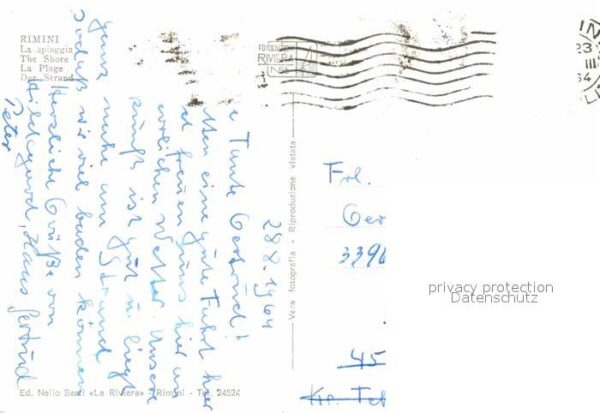 RIMINI
La spiaggia
The Shore
La Plage
Der Strand
RIVIERA
23
III
64
28.8.1964
e Tante Gertrud!
tten eine gute Fahrt hier
d freuen uns hier am
errlichen Wetter. Unsere
kunft ist gut u. liegt
ganz nahe am Strand
sodaß wir viel baden können
Herzliche Grüße von
Hildegard, Hans Gertrud
Peter
Vera fotografia - Riproduzione vietata
Frl.
Ger
3390
45
privacy protection
Datenschutz
Ed. Nello Bezzi «La Riviera» - Rimini - Tel. 24524